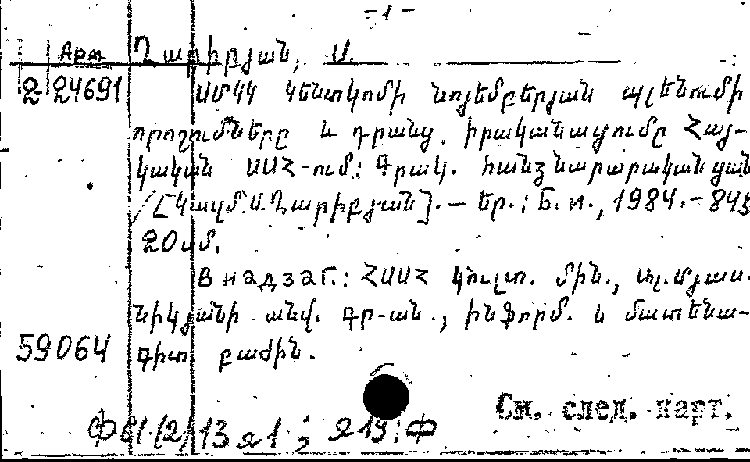 -1-
Арм Ղարիբյան, Ս.
2 24691 ՍՄԿԿ Կենտկոմի նոյեմբերյան պլենումի
որոշումները և դրանց իրականացումը Հայ-
կական ՍՍՀ-ում: Գրակ. հանձնարարական ցան
/[Կազմ. Ս. Ղարիբյան].— Եր.: Б. и., 1984.— 84 էջ
20 սմ.
В надзаг.: ՀՍՍՀ կուլտ. մին., Ալ. Մյաս-
նիկյանի անվ. գր-ան., ինֆորմ. և մատենա-
59064 գիտ. բաժին.
См. след. карт.
Ф61(2)13 я1; я19:Ф